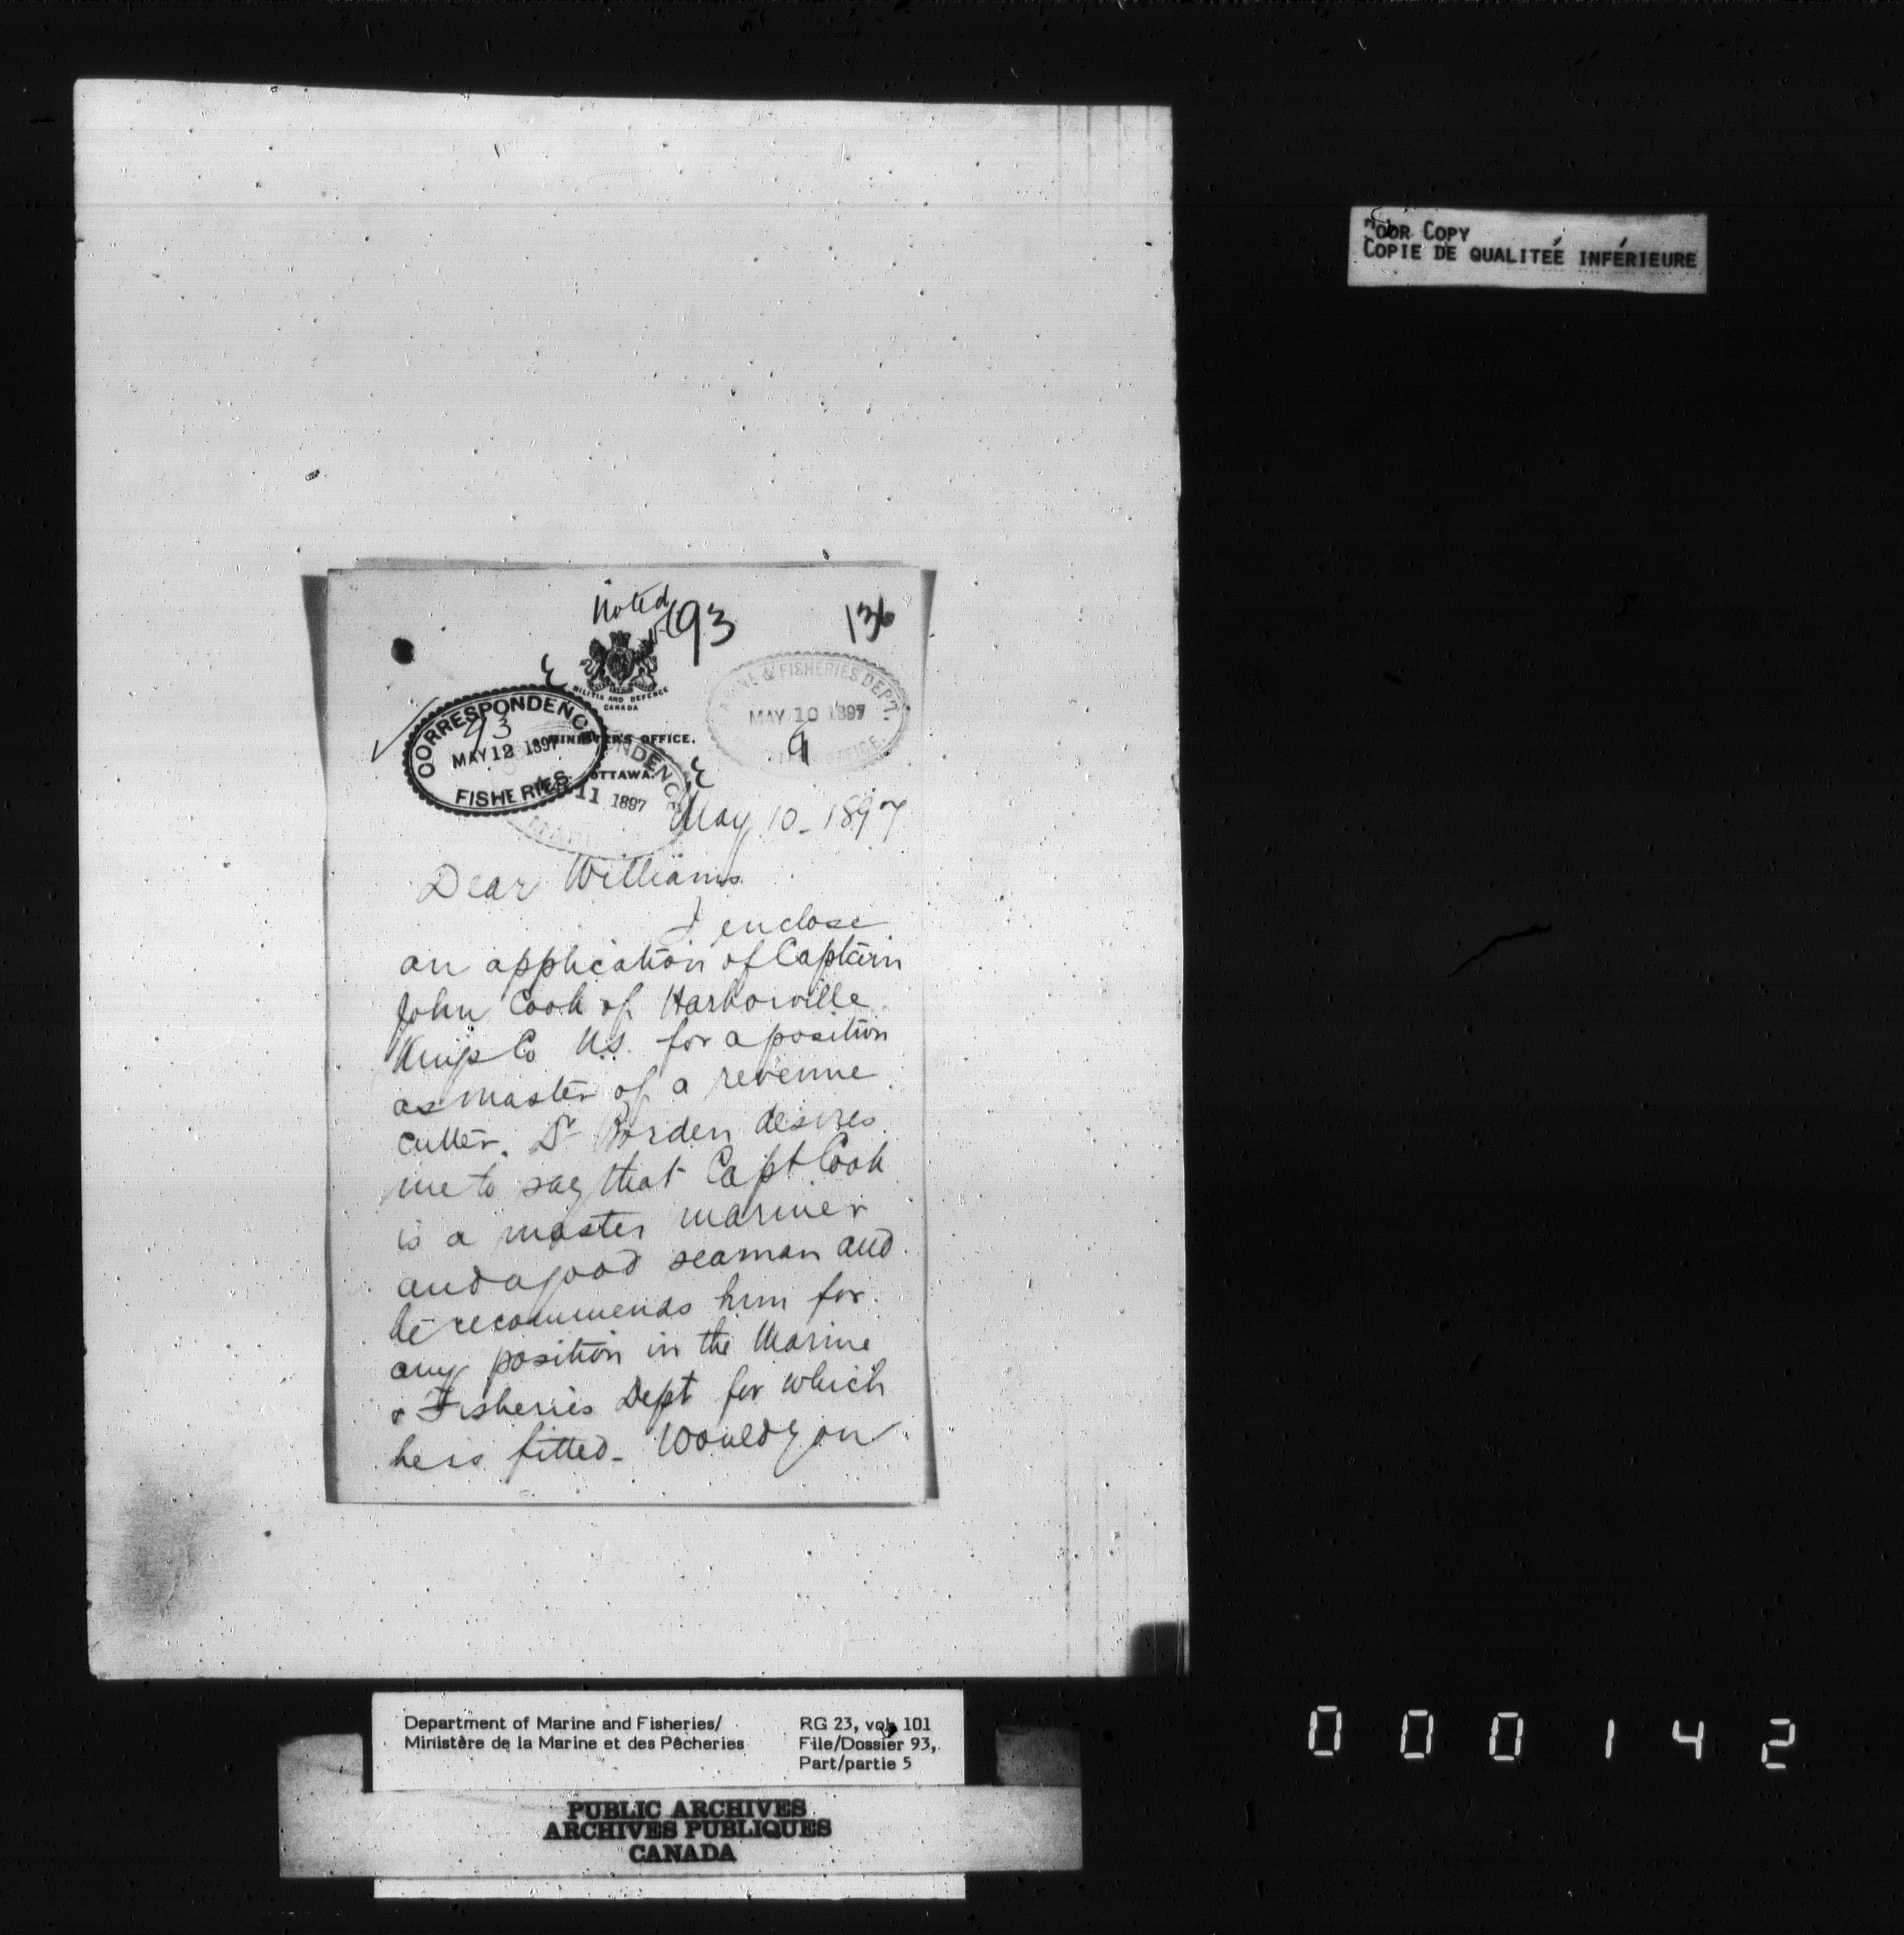 Poor Copy
Copie de qualiteé inférieure
Noted
93
136
MILITIA AND DEFENCE
CANADA
MARINE & FISHERIES DEPT.
MAY 10 1897
9
OFFICE.
CORRESPONDENCE
93
MAY 12 1897
FISHERIES.
MINISTER'S OFFICE.
OTTAWA.
11 1897
May 10 - 1897
Dear Williams
I enclose
an application of Captain
John Cook of Harborville
Kings Co N.S. for a position
as master of a revenue
cutter. Dr Borden desires
me to say that Capt Cook
is a master mariner
and a good seaman and
he recommends him for
any position in the Marine
& Fisheries Dept for which
he is fitted - Would you
Department of Marine and Fisheries/
Ministère de la Marine et des Pêcheries
RG 23, vol. 101
File/Dossier 93,
Part/partie 5
PUBLIC ARCHIVES
ARCHIVES PUBLIQUES
CANADA
000142